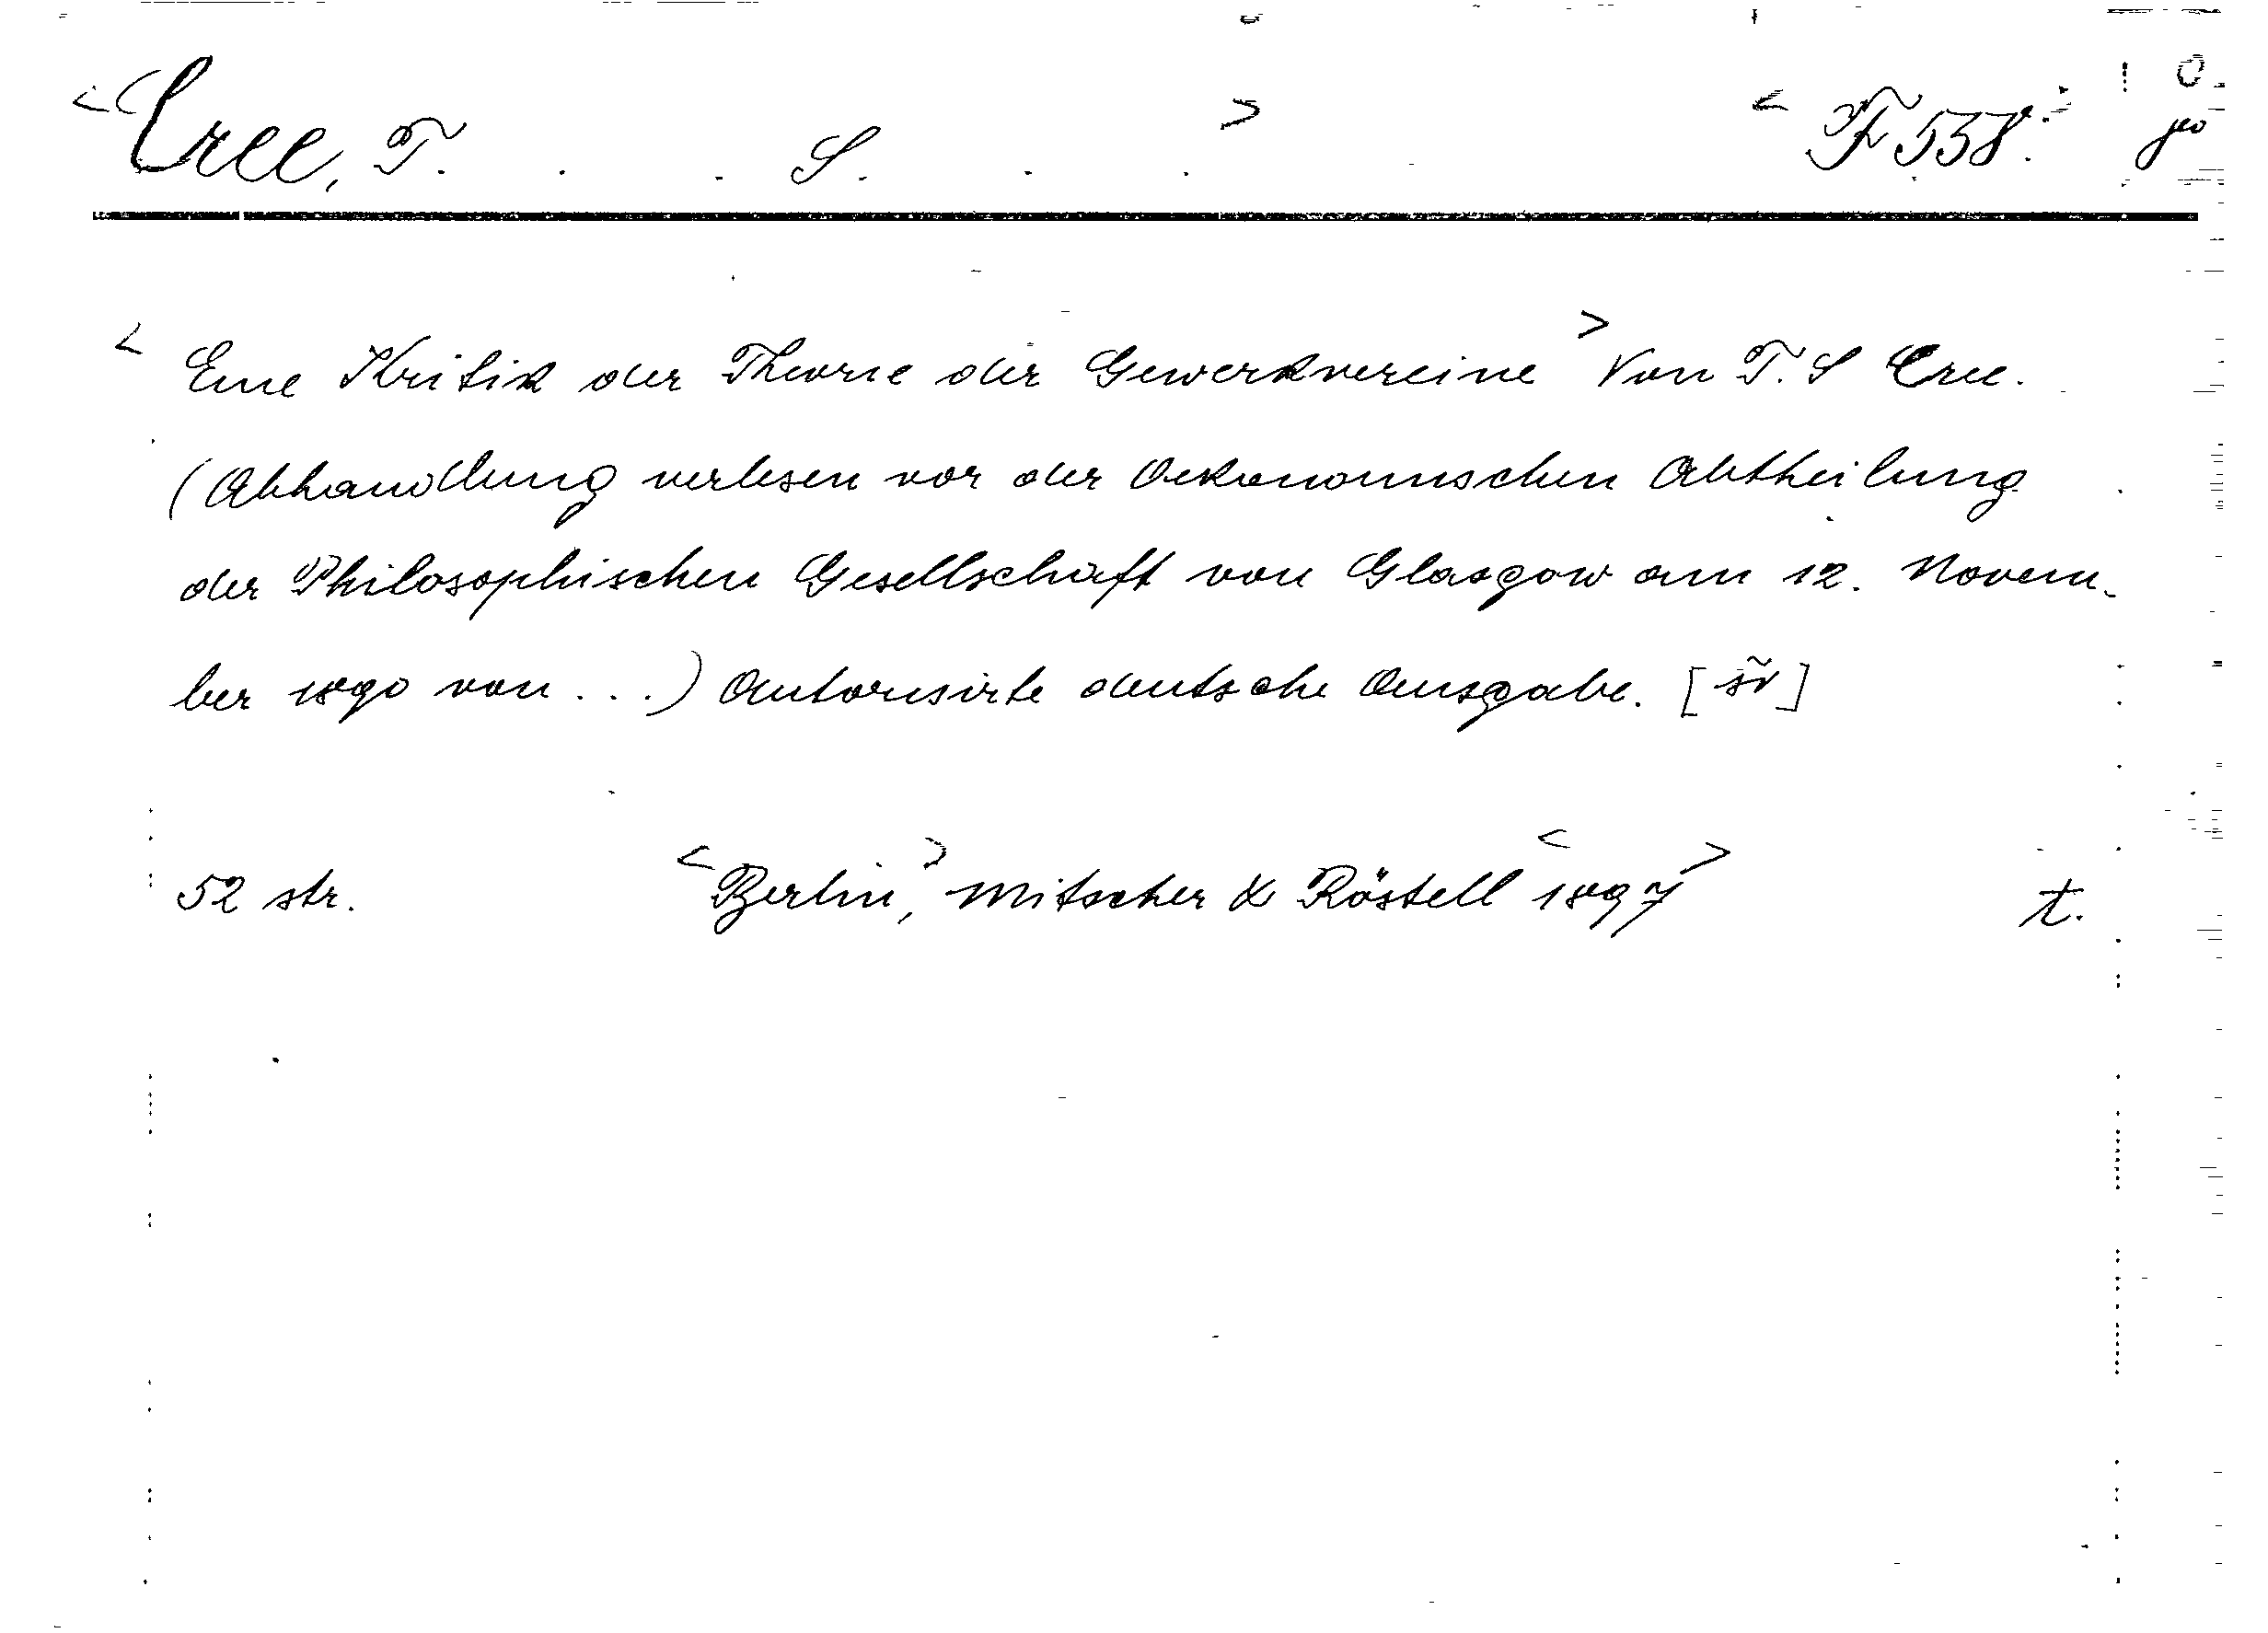 <Cree, T. . . S. . . > < F 558.
< Eine Kritik der Theorie der Gewerkvereine > Von T. S Cree.
(Abhandlung verlesen vor der Oekonomischen Abtheilung
der Philosophischen Gesellschaft von Glasgow am 12. Novem-
ber 1890 von ...) Autorisirte deutsche Ausgabe.
52 str. <Berlin,> Mitscher & Röstell <1897> t.